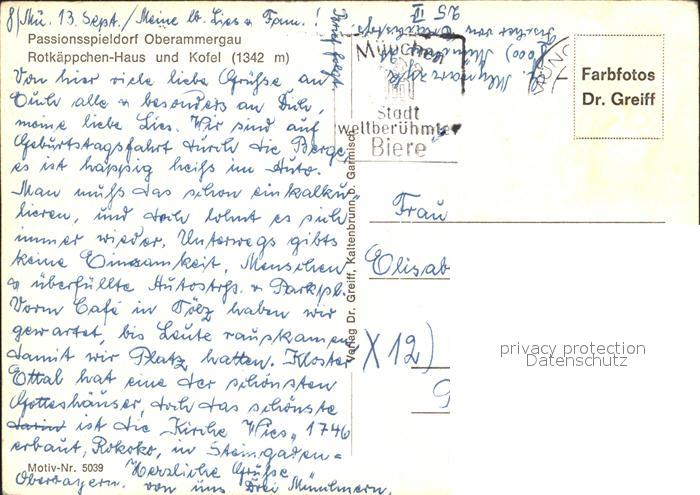 8/Mü. 13. Sept./Meine lb. Lies u Fam.!
Passionsspieldorf Oberammergau
Rotkäppchen-Haus und Kofel (1342 m)
Von hier viele liebe Grüße an
Euch alle u besonders an Dich,
meine liebe Lies. Wir sind auf
Geburtstagsfahrt durch die Berge,
es ist häppig heiß im Auto.
Man muß das schon einkalku-
lieren, und doch lohnt es sich
immer wieder. Unterwegs gibts
keine Einsamkeit, Menschen
u überfüllte Autostrß. u Parkpl.
Vorm Café in Tölz haben wir
gewartet, bis Leute rauskamen
damit wir Platz hatten. Kloster
Ettal hat eine der schönsten
Gotteshäuser, doch das schönste
darin ist die Kirche Wies, 1746
erbaut, Rokoko, in Steingaden=
Oberbayern. Herzliche Grüße
von uns Drei Münchnern.
Motiv-Nr. 5039
Verlag Dr. Greiff, Kaltenbrunn b. Garmisch
München
Stadt
weltberühmter
Biere
Farbfotos
Dr. Greiff
Frau
Elisab
X 12)
privacy protection
Datenschutz